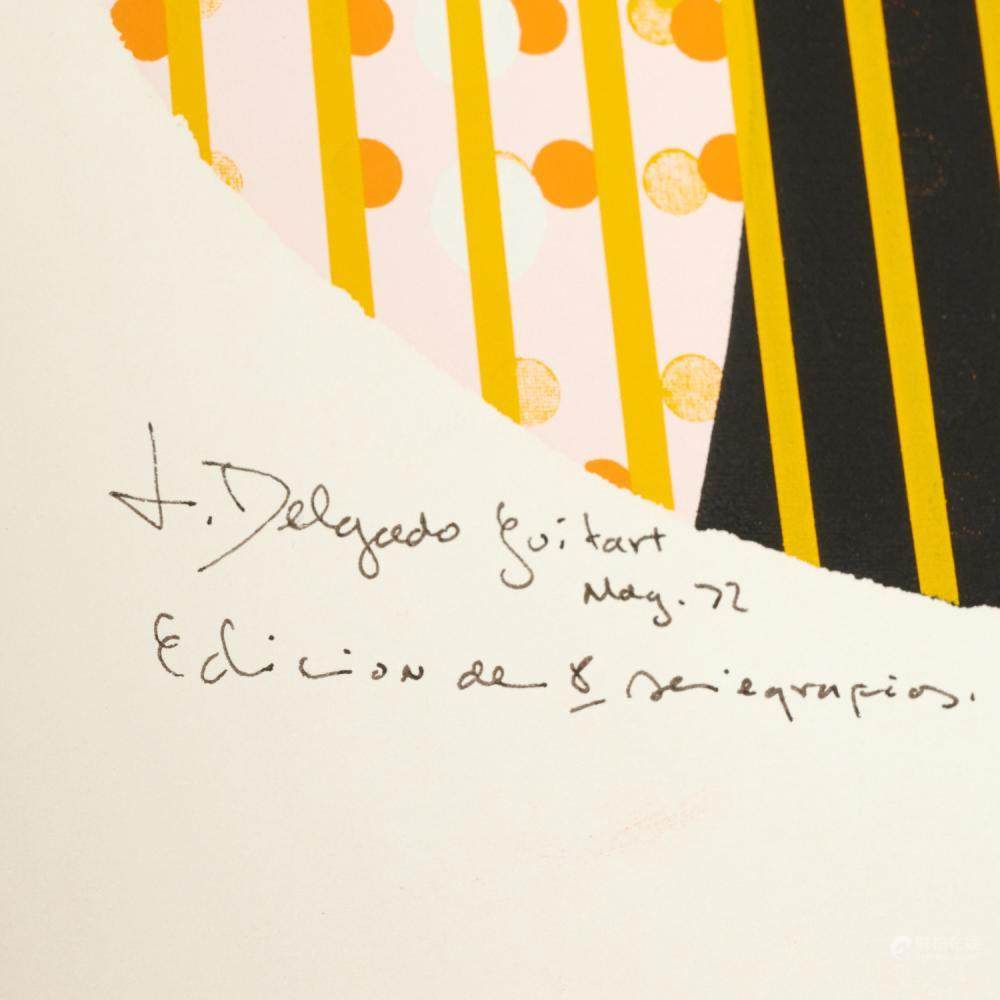 J. Delgado Guitart
May. 72
Edicion de 8 seriegrafias.